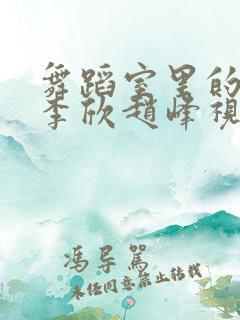 舞蹈室里的
李欣赵峰視
冯导篤
未经同意禁止转载